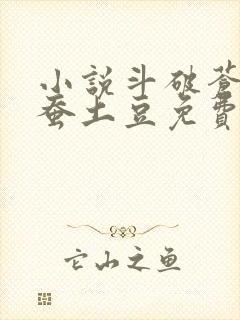 小說斗破蒼
蚕土豆免費
它山之鱼